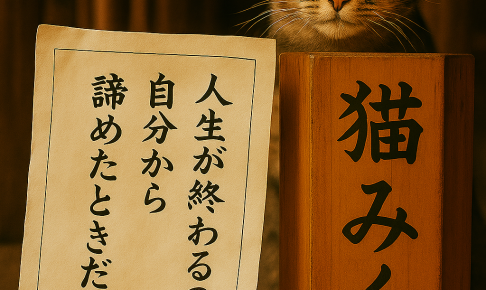 人生が終わる
自分から
諦めたときだ
猫み